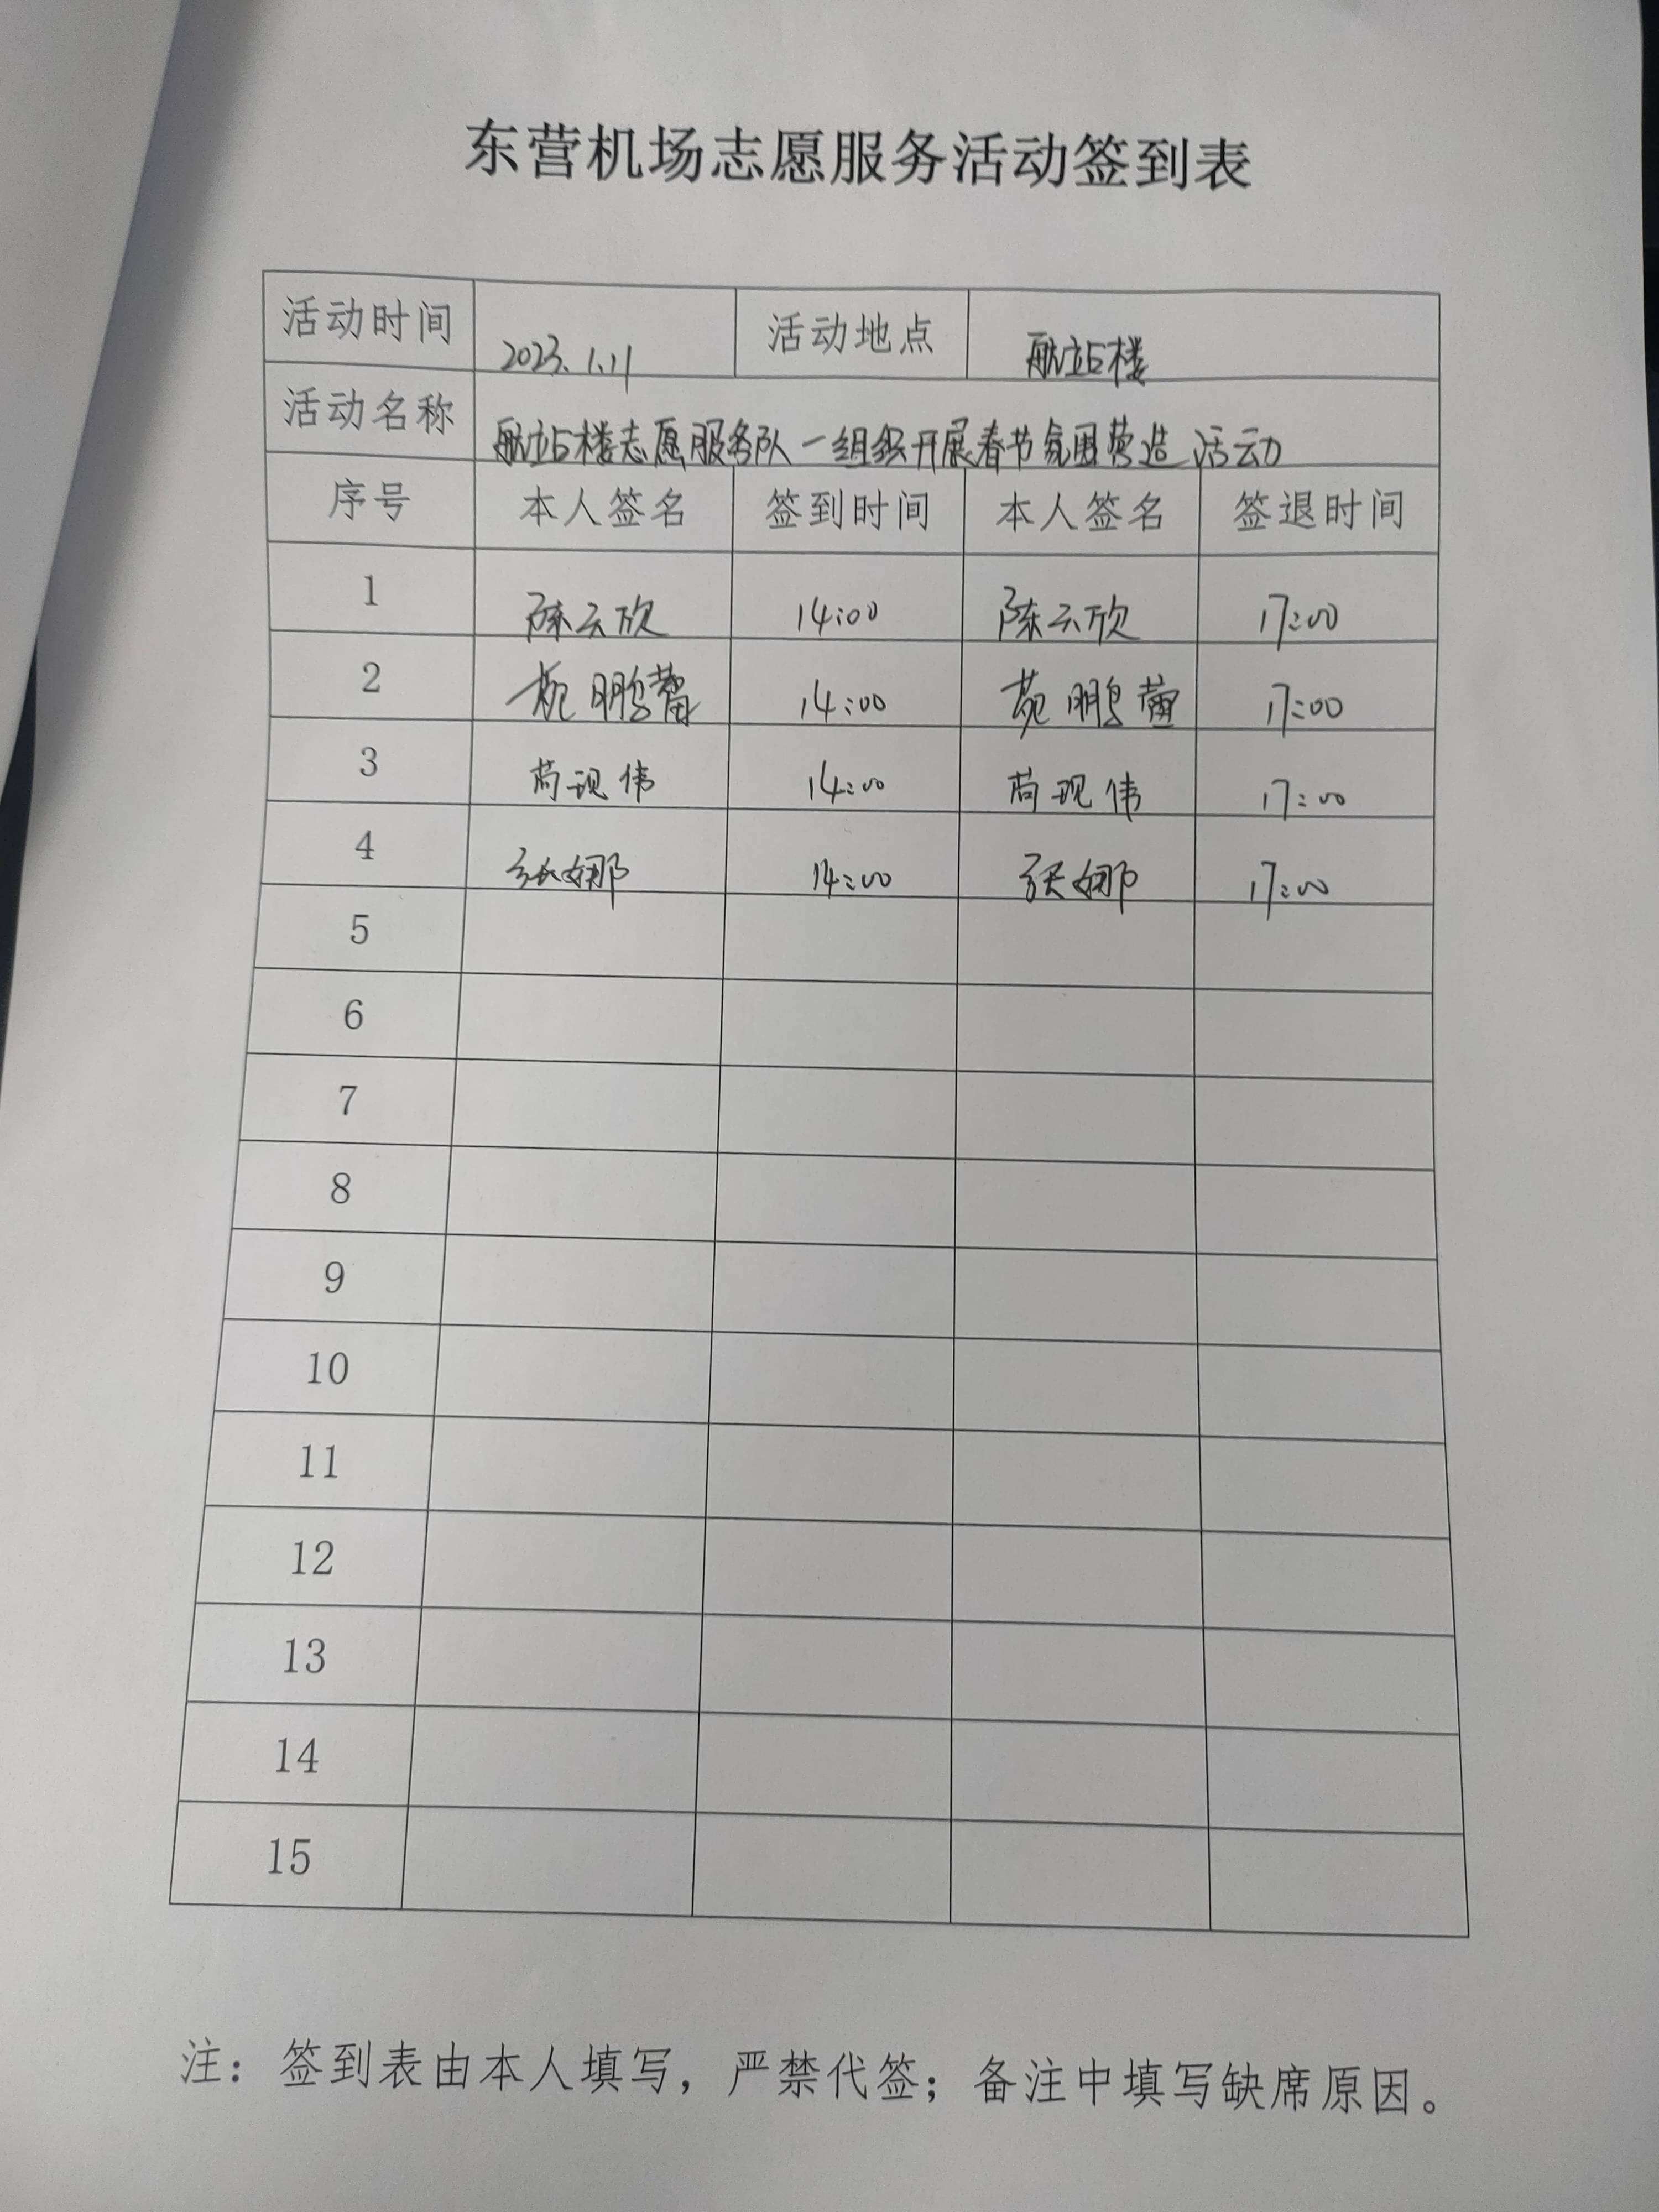 东营机场志愿服务活动签到表
活动时间 2023.1.11 活动地点 航站楼
活动名称 航站楼志愿服务队一组织开展春节氛围营造活动
序号 本人签名 签到时间 本人签名 签退时间
1 陈云欣 14:00 陈云欣 17:00
2 苑鹏蕾 14:00 苑鹏 17:00
3 苘现伟 14:00 苘现伟 17:00
4 张娜 14:00 张娜 17:00
5
6
7
8
9
10
11
12
13
14
15
注：签到表由本人填写，严禁代签；备注中填写缺席原因。